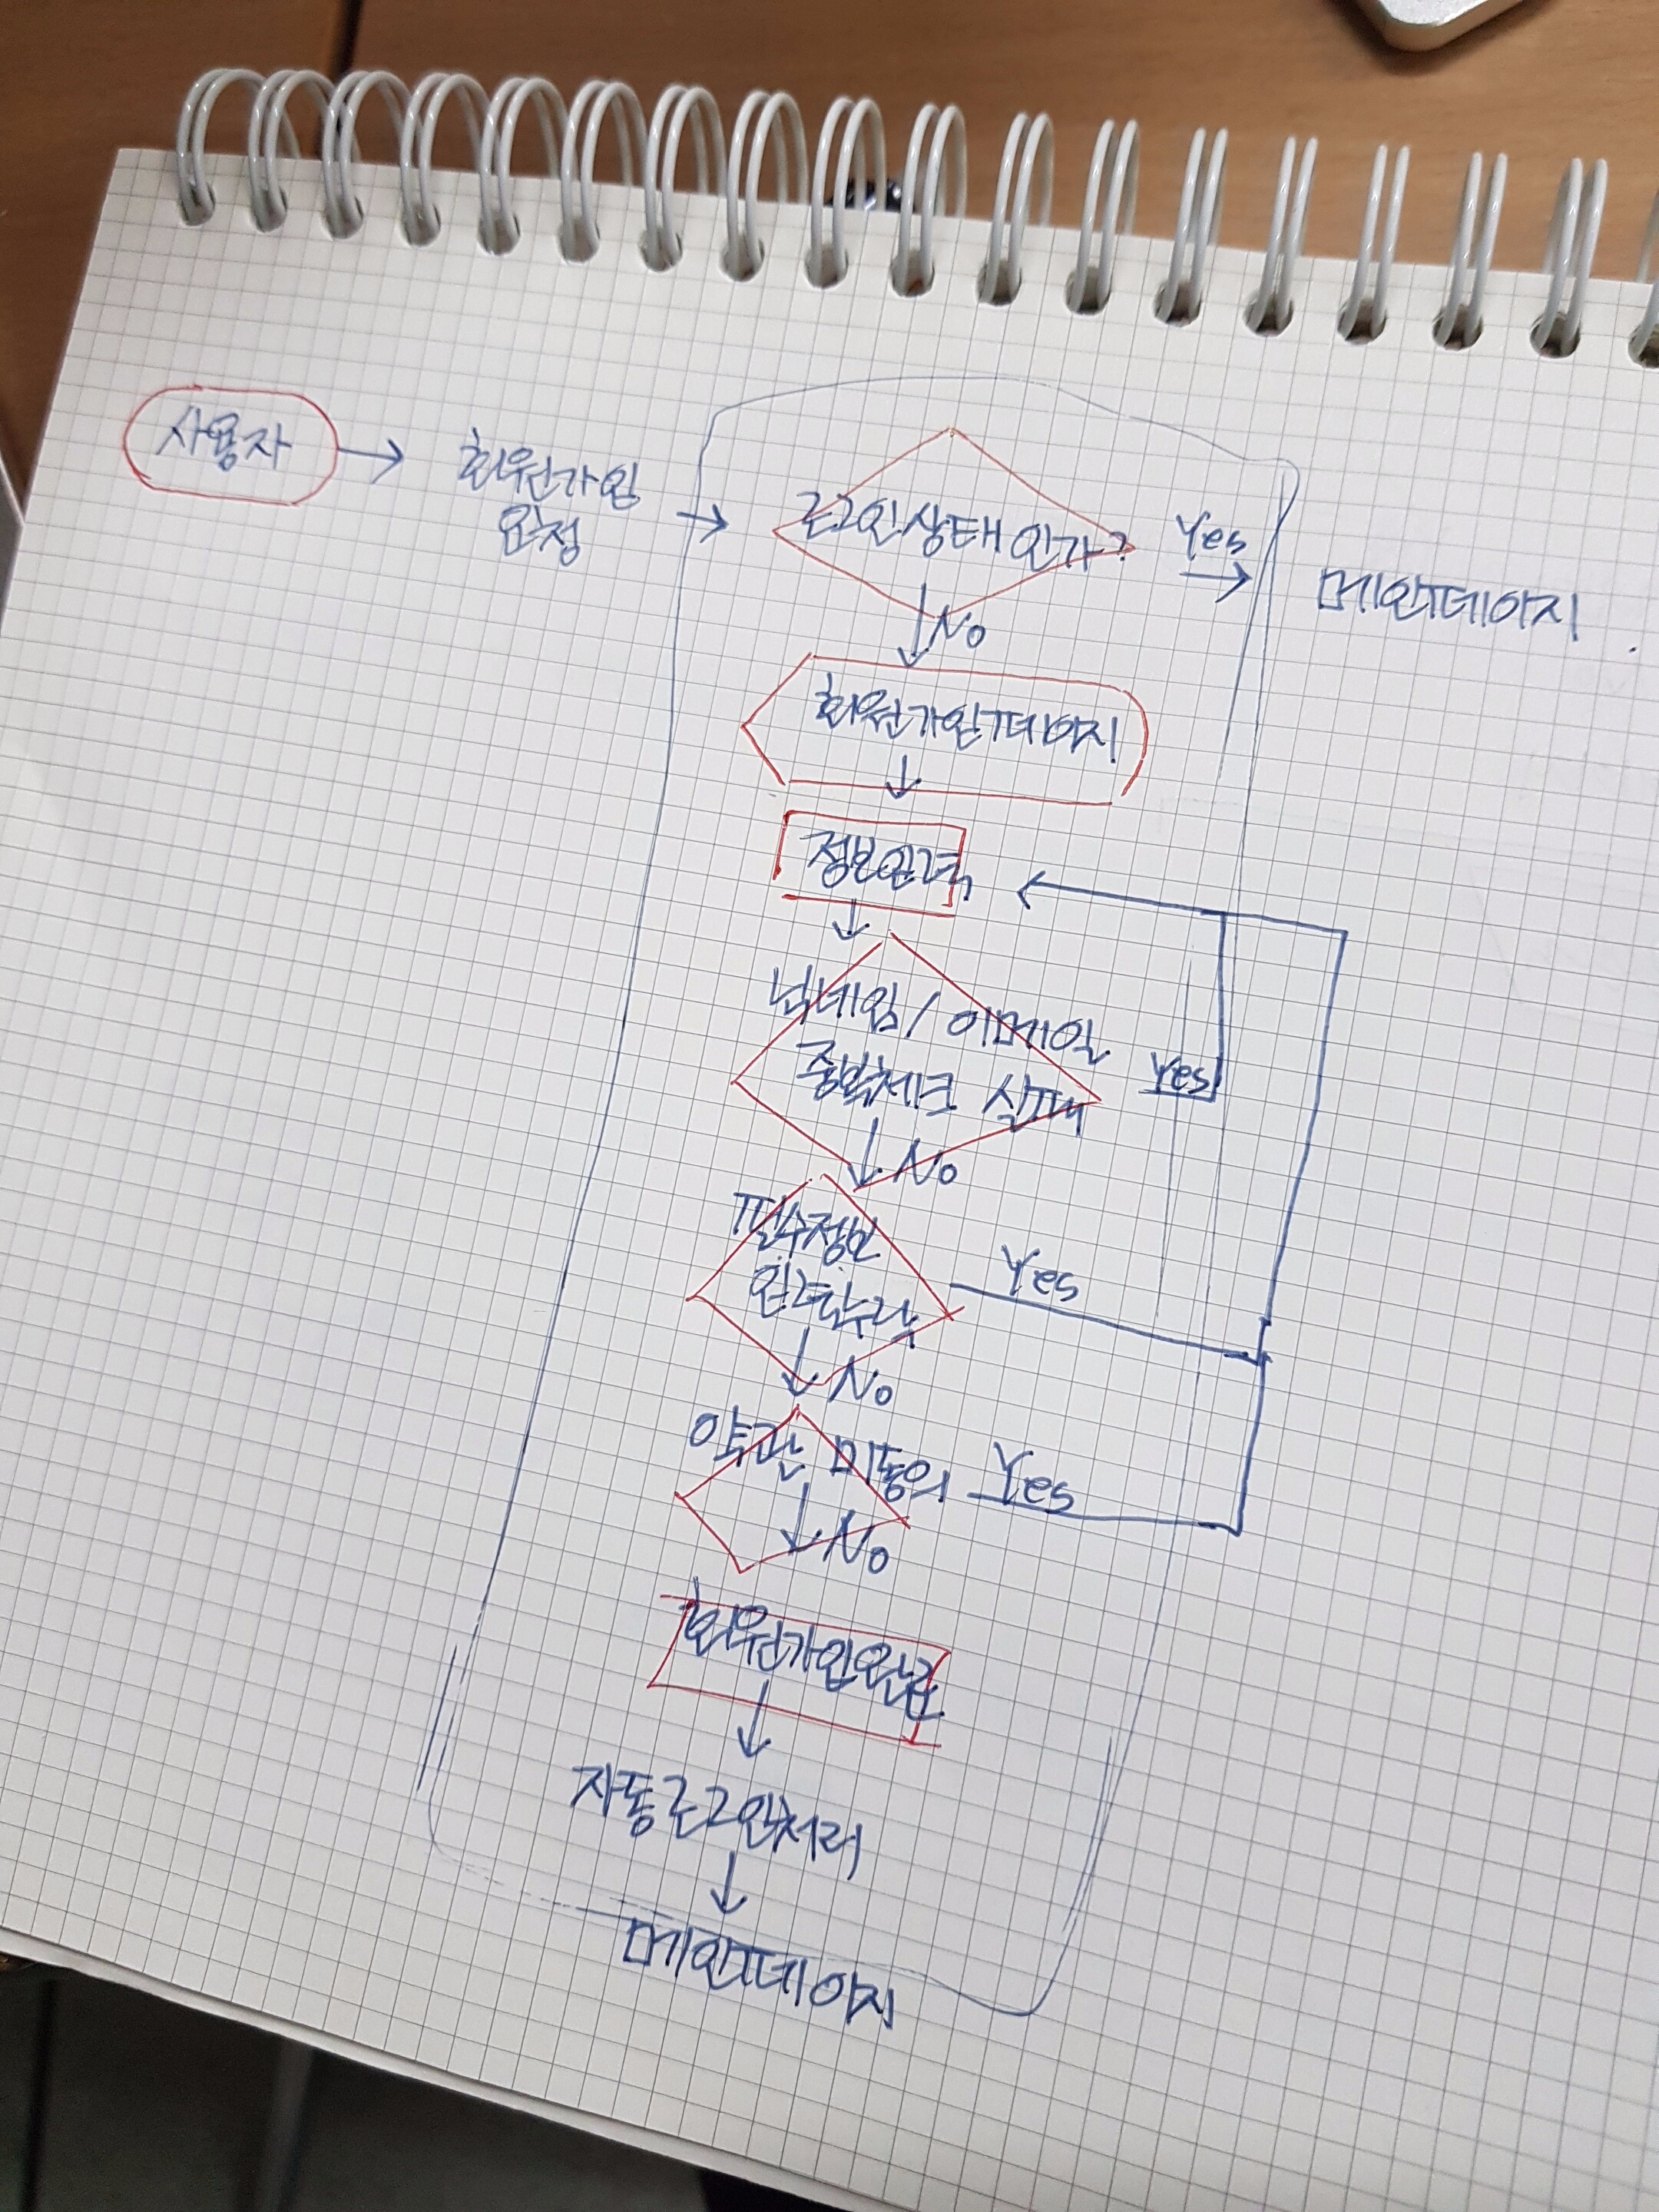 사용자
회원가입
요청
로그인상태 인가?
Yes
메인페이지
No
회원가입페이지
정보입력
닉네임 / 이메일
중복체크 실패
Yes
No
필수정보
입력누락
Yes
No
약관 미동의
Yes
No
회원가입완료
자동로그인처리
메인페이지